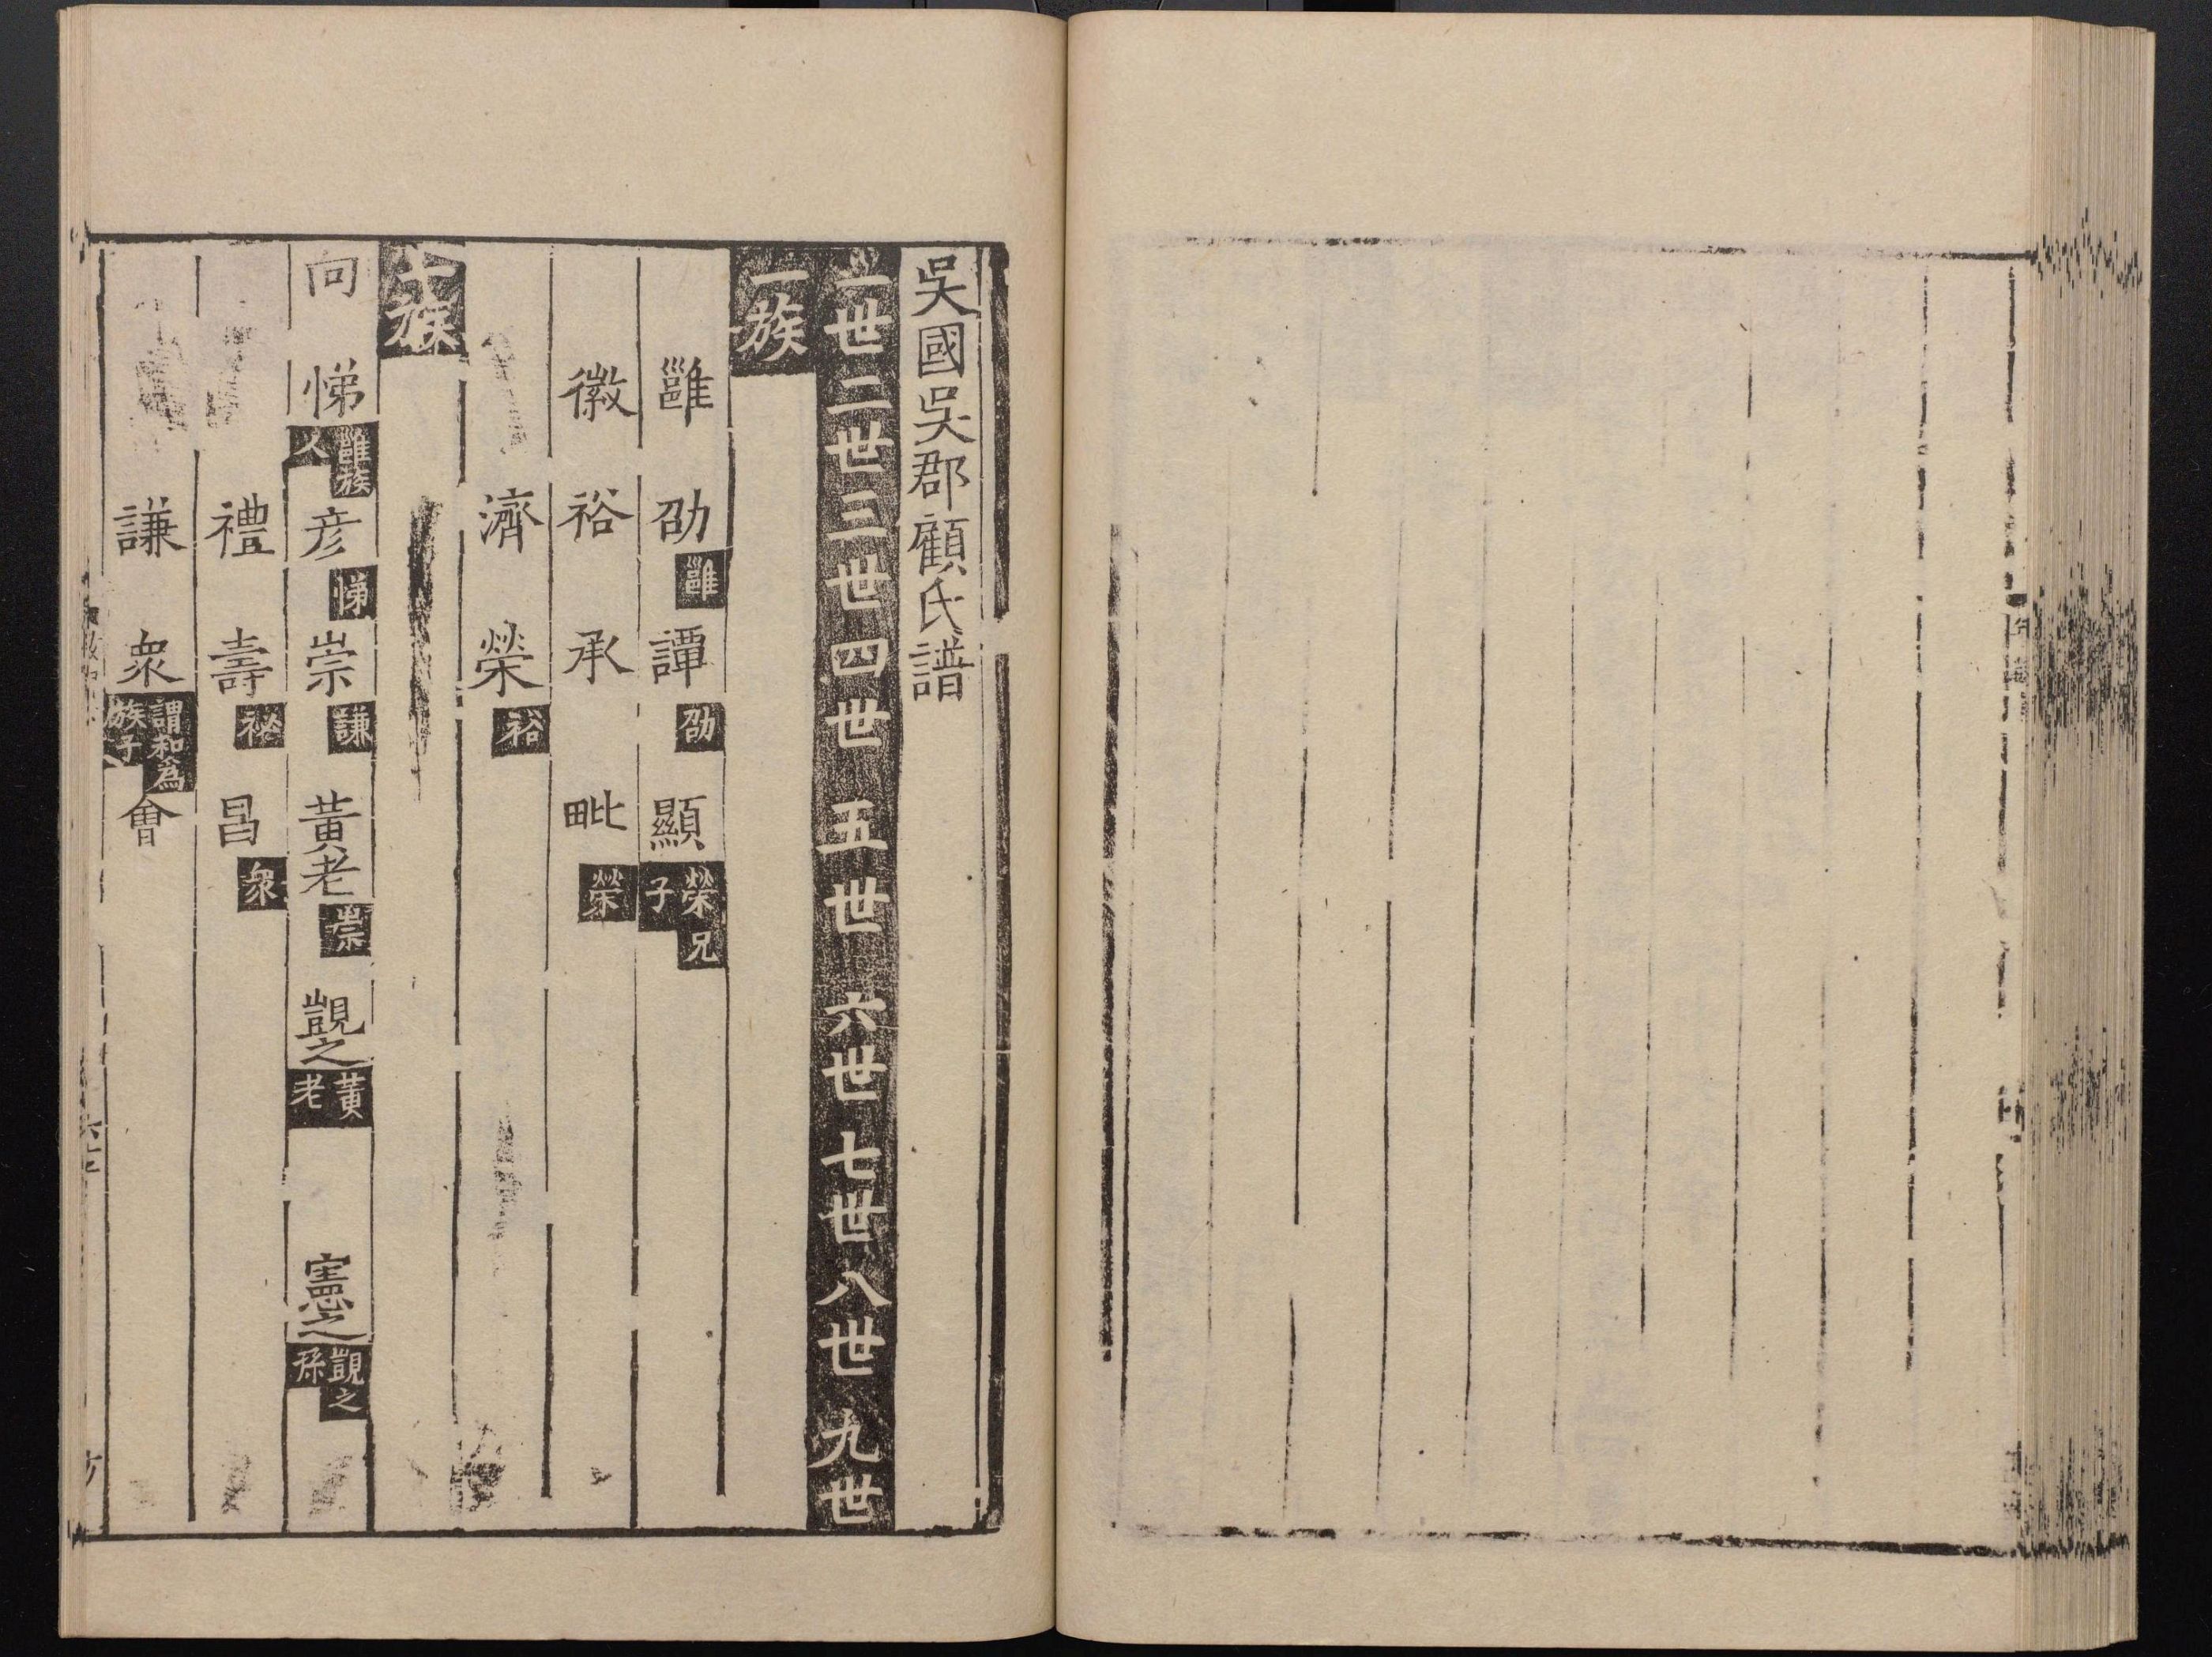 吳國吳郡顧氏譜
一世二世三世四世五世六世七世八世九世
一族
雝 劭 雝 譚 劭 顯 榮兄子
徽 裕 承 毗 榮
濟 榮 裕
族
向 悌 雝族人 彦 悌 崇 謙 黃老 崇 覬之 黃老 憲之 覬之孫
禮 壽 祕 昌 衆
謙 衆 謂和為族子 會